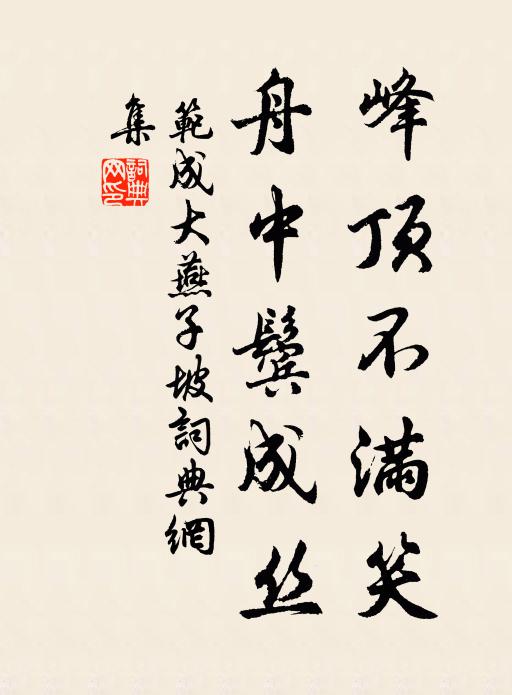 峰頂不滿笑
舟中鬢成丝
範成大燕子坡詞典網
集
詞典
网印